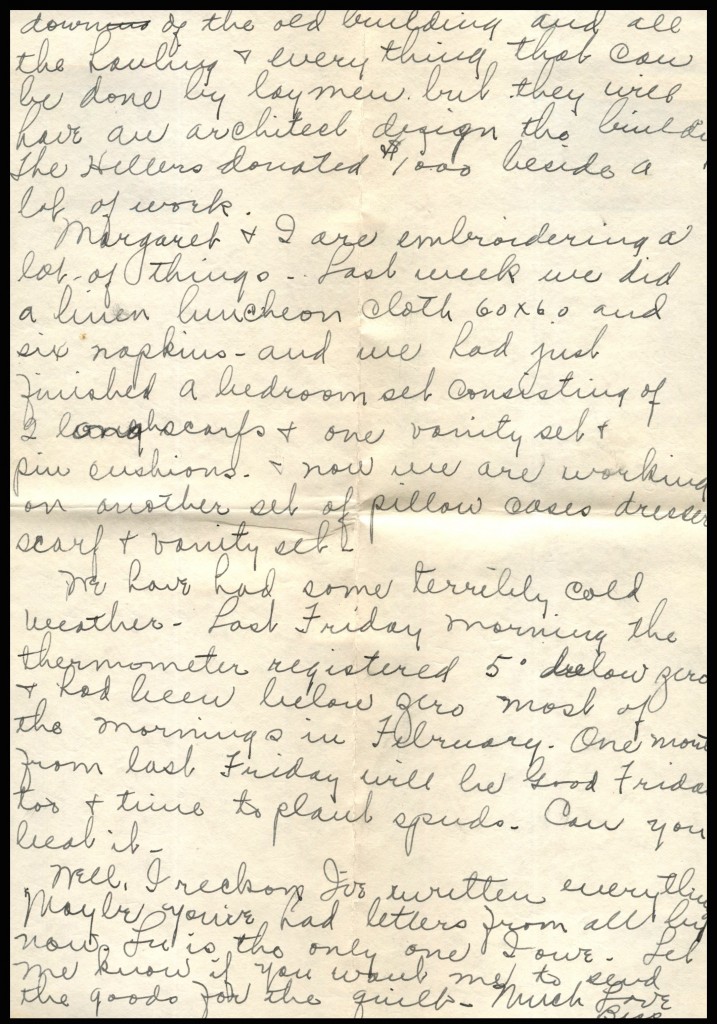 down of the old building and all
the hauling & everything that can
be done by laymen but they will
have an architect design the buildi
The Hellers donated $1000 beside a
lot of work.
Margaret & I are embroidering a
lot of things - Last week we did
a linen luncheon cloth 60x60 and
six napkins - and we had just
finished a bedroom set consisting of
2 long scarfs & one vanity set &
pin cushions. & now we are working
on another set of pillow cases dresser
scarf & vanity set -
We have had some terribly cold
weather - Last Friday morning the
thermometer registered 5° below zero
& had been below zero most of
the mornings in February. One mont
from last Friday will be Good Frida
too & time to plant spuds - Can you
beat it -
Well, I reckon I've written everythin
Maybe you've had letters from all by
now. Lu is the only one I owe. Let
me know if you want me to send
the goods for the quilt - Much Love
Bess